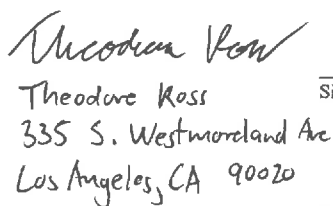 Theodore Ross
Theodore Ross
335 S. Westmoreland Ave
Los Angeles, CA 90020